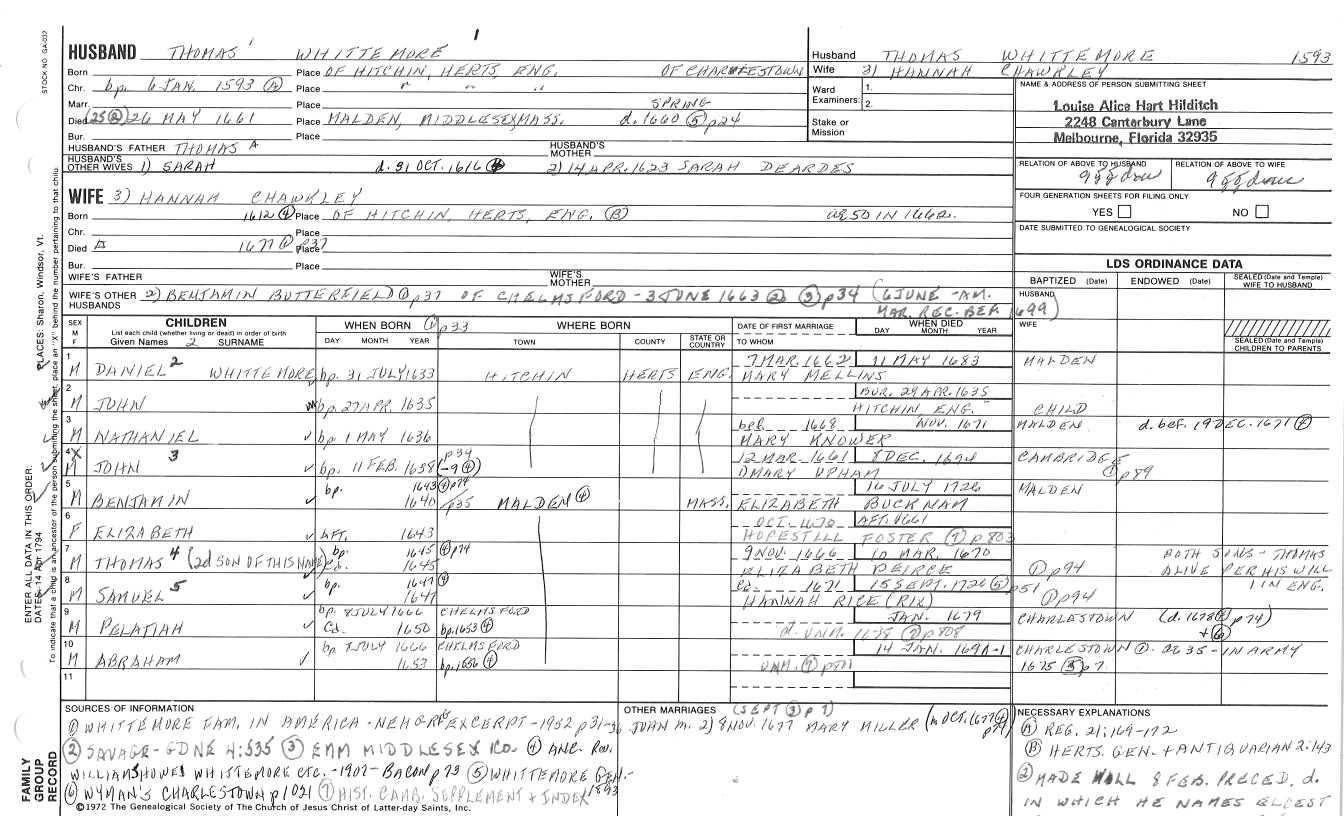 STOCK NO. GA-032
1
HUSBAND THOMAS 1 WHITTEMORE
Born Place OF HITCHIN, HERTS, ENG. OF CHARLESTOWN
Chr. bp. 6 JAN. 1593 (A) Place " " "
Marr. Place SPRING
Died (25 (2)) 26 MAY 1661 Place MALDEN, MIDDLESEX, MASS. d. 1660 (5) p24
Bur. Place
HUSBAND'S FATHER THOMAS A HUSBAND'S MOTHER
HUSBAND'S OTHER WIVES 1) SARAH d. 31 OCT. 1616 (4) 2) 14 APR. 1623 SARAH DEARDES
WIFE 3) HANNAH CHAWKLEY
Born 1612 (4) Place OF HITCHIN, HERTS, ENG. (B) ae 50 IN 1662.
Chr. Place
Died 1677 (1) p37 Place
Bur. Place
WIFE'S FATHER WIFE'S MOTHER
WIFE'S OTHER HUSBANDS 2) BENJAMIN BUTTERFIELD (1) p37 OF CHELMSFORD - 3 JUNE 1663 (2) (3) p34 (6 JUNE - AM.
MAR. REC. BEF. 1699)
Husband THOMAS WHITTEMORE 1593
Wife 3) HANNAH CHAWKLEY
Ward 1.
Examiners: 2.
Stake or Mission
NAME & ADDRESS OF PERSON SUBMITTING SHEET
Louise Alice Hart Hilditch
2248 Canterbury Lane
Melbourne, Florida 32935
RELATION OF ABOVE TO HUSBAND RELATION OF ABOVE TO WIFE
FOUR GENERATION SHEETS FOR FILING ONLY
YES NO
DATE SUBMITTED TO GENEALOGICAL SOCIETY
LDS ORDINANCE DATA
BAPTIZED (Date) ENDOWED (Date) SEALED (Date and Temple) WIFE TO HUSBAND
HUSBAND
WIFE
SEALED (Date and Temple) CHILDREN TO PARENTS
SEX M F CHILDREN List each child (whether living or dead) in order of birth Given Names 2 SURNAME
WHEN BORN (1) p33 DAY MONTH YEAR
WHERE BORN TOWN COUNTY STATE OR COUNTRY
DATE OF FIRST MARRIAGE TO WHOM
WHEN DIED DAY MONTH YEAR
1 M DANIEL 2 WHITTEMORE bp. 31 JULY 1633 HITCHIN HERTS ENG. 7 MAR. 1662 11 MAY 1683 MALDEN
MARY MELLINS
2 M JOHN bp. 27 APR. 1635 BUR. 29 APR. 1635
HITCHIN, ENG. CHILD
3 M NATHANIEL bp. 1 MAY 1636 bef. 1668 NOV. 1671 MALDEN d. bef. 19 DEC. 1671 (4)
MARY KNOWER
4 X M JOHN 3 bp. 11 FEB. 1638 (-9 (4)) p34 12 MAR. 1661 8 DEC. 1694 CAMBRIDGE
1) MARY UPHAM (1) p89
5 M BENJAMIN bp. 1643 (4) p74 16 JULY 1726 MALDEN
1640 p35 MALDEN (4) MASS. ELIZABETH BUCKNAM
6 F ELIZABETH AFT. 1643 OCT. 1670 AFT. 1661
HOPESTILL FOSTER (7) p 803
7 M THOMAS 4 (2d SON OF THIS NAME) bp. 1645 (4) p74 9 NOV. 1666 10 MAR. 1670 BOTH SONS - THOMAS
Cd. 1645 ELIZABETH PEIRCE (1) p94 ALIVE PER HIS WILL
1 IN ENG.
8 M SAMUEL 5 bp. 1647 (4) Cd. 1671 15 SEPT. 1726 (5) p51
1647 HANNAH RICE (RIX) (1) p94
9 M PELATIAH bp. 8 JULY 1666 CHELMSFORD JAN. 1679 CHARLESTOWN (d. 1678 (4) p74)
Cd. 1650 bp. 1653 (4) d. UNM. 1678 (7) p808 + (6)
10 M ABRAHAM bp. 8 JULY 1666 CHELMSFORD 14 JAN. 1690-1 CHARLESTOWN
1653 bp. 1656 (4) UNM. ae 35 - IN ARMY
1675 (3) p7.
11
SOURCES OF INFORMATION
(1) WHITTEMORE FAM. IN AMERICA - NEHGR EXCERPT - 1952 p31-36
(2) SAVAGE - GDNE 4:535 (3) EMM MIDDLESEX CO. (4) ANC. ROW.
WILLIAM HOWES WHITTEMORE ETC. - 1907 - BACON p 73 (5) WHITTEMORE GEN. - 1893
(6) WYMAN'S CHARLESTOWN p 1021 (7) HIST. CAMB. SUPPLEMENT + INDEX
OTHER MARRIAGES (SEPT (3) p7)
JOHN M. 2) 8 NOV. 1677 MARY MILLER (m OCT. 1677 (4) p74)
NECESSARY EXPLANATIONS
(A) REG. 21:169-172
(B) HERTS. GEN. + ANTIQUARIAN 2:143
(2) MADE WILL 8 FEB. PRECED. d.
IN WHICH HE NAMES ELDEST
©1972 The Genealogical Society of The Church of Jesus Christ of Latter-day Saints, Inc.
FAMILY GROUP RECORD
ENTER ALL DATA IN THIS ORDER:
DATES: 14 Apr 1794
PLACES: Sharon, Windsor, Vt.
To indicate that a child is an ancestor of the person submitting the sheet, place an "X" behind the number pertaining to that child.